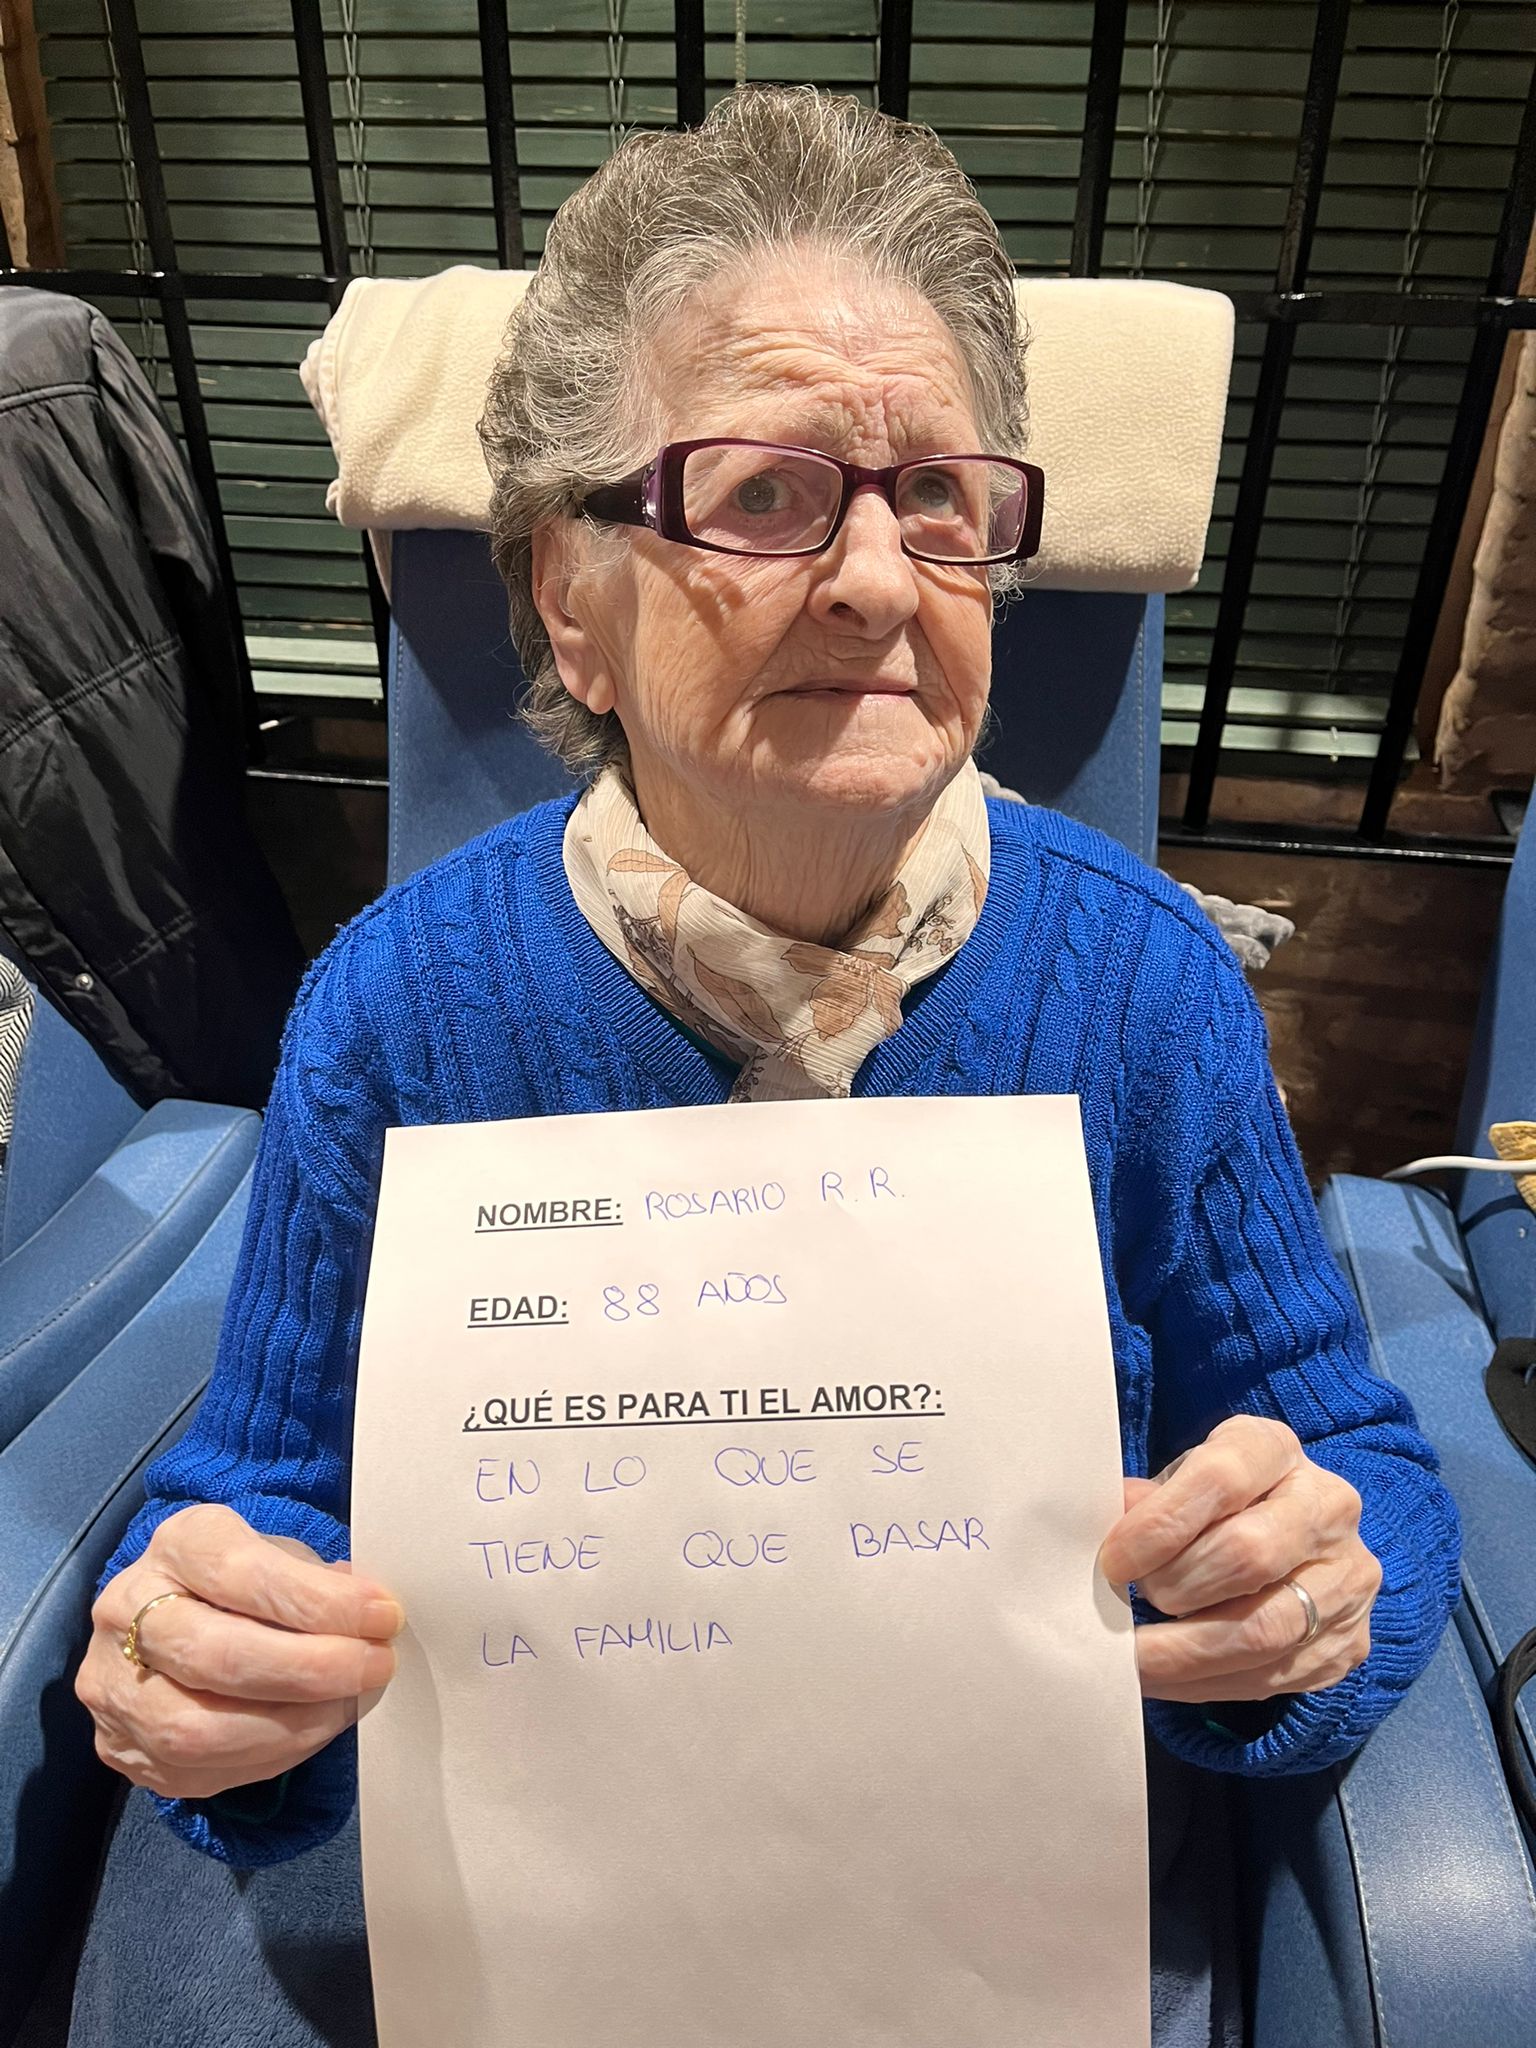 NOMBRE: ROSARIO R. R.
EDAD: 88 AÑOS
¿QUÉ ES PARA TI EL AMOR?:
EN LO QUE SE
TIENE QUE BASAR
LA FAMILIA